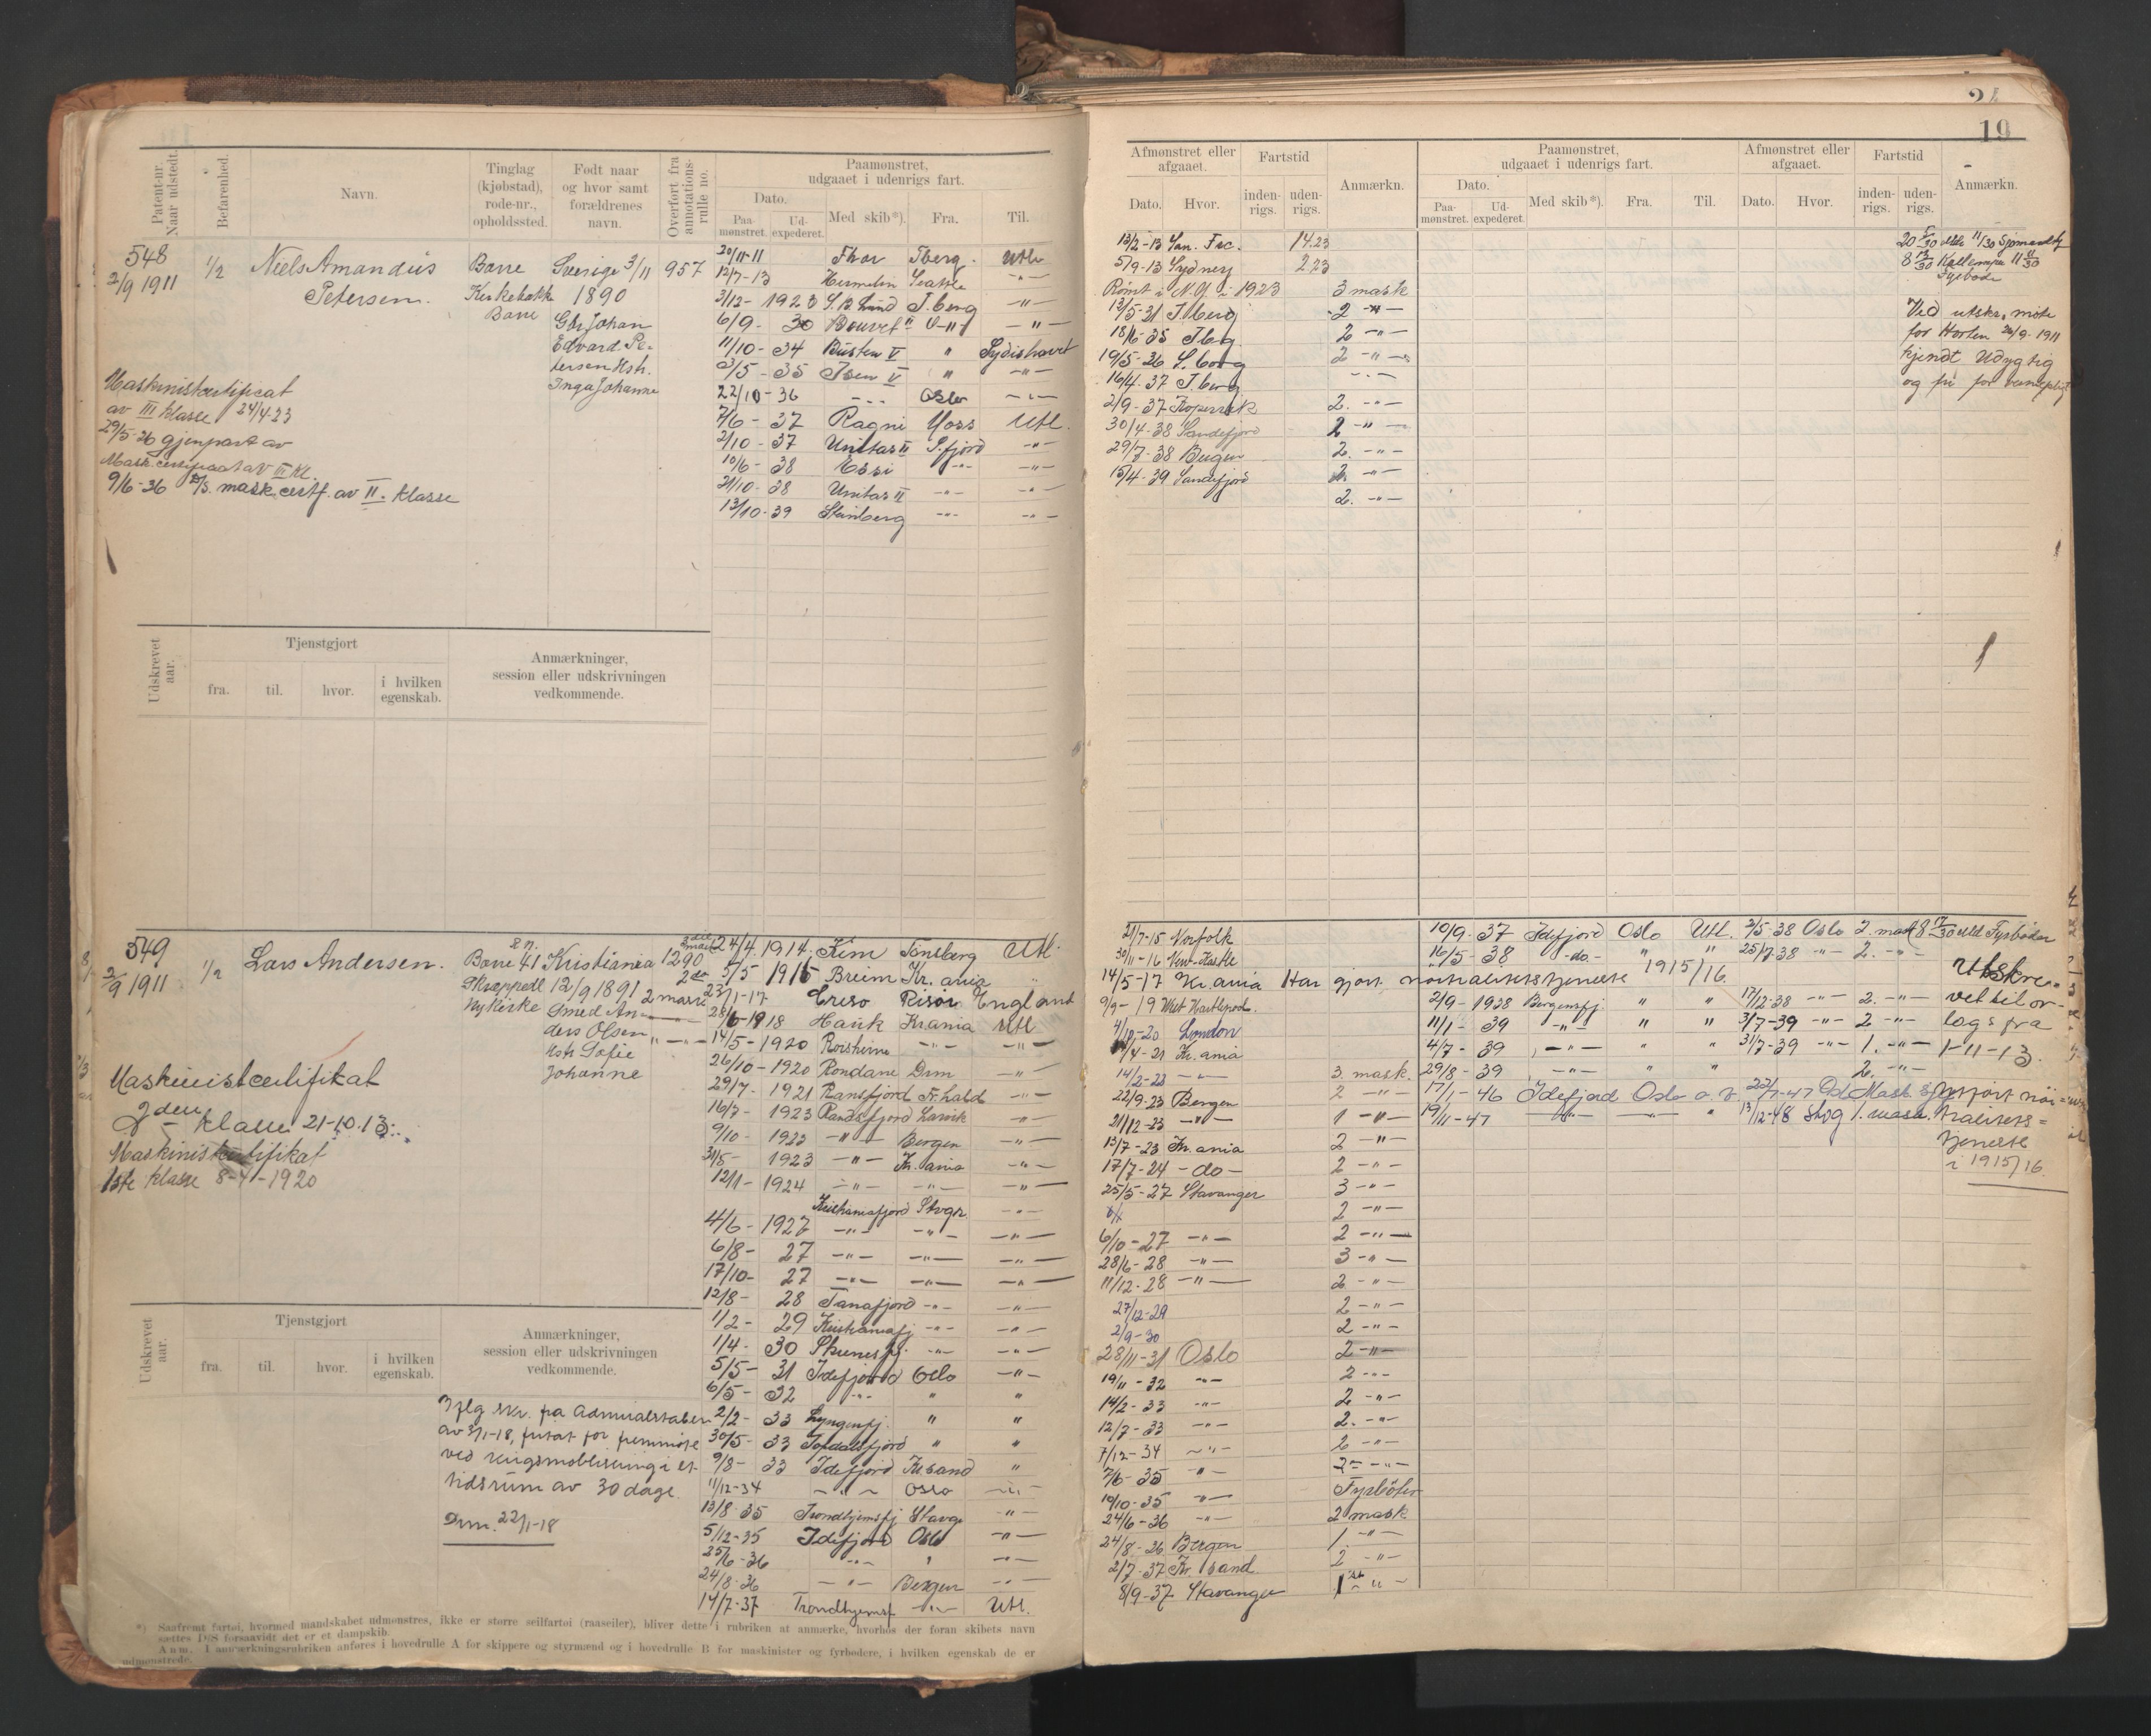 19
Patent-nr.
Naar udstedt.
Befarenhed.
Navn.
Tinglag
(kjøbstad),
rode-nr.,
opholdssted.
Født naar
og hvor samt
forældrenes
navn.
Overført fra
annotations-
rulle no.
Paamønstret,
udgaaet i udenrigs fart.
Dato.
Paa-
mønstret.
Ud-
expederet.
Med skib*).
Fra.
Til.
548
2/9 1911
1/2
Niels Amandus
Petersen.
Borre
Kirkebakk
Borre
Sverige 3/11
1890
Johan
Edvard Pe-
tersen Hstr.
Inga Johanne
957
Maskinistcertificat
av III klasse 24/4-23
29/5-26 gjenpart av
Mask.certificat av III kl.
9/6-36 mask.certf. av II. klasse
20/11-11 Thor Tberg. Utl.
12/7-13 Hermelin Seattle -"-
3/12-1923 T.berg -"-
6/9-30 Bouvet II -"-
11/10-34 Busten V " Sydishavet
3/5-35 Isen V " -"-
22/10-36 -"- Oslo -"-
7/6-37 Ragni Moss Utl.
2/10-37 Unitas II S.fjord -"-
10/6-38 Essi -"- -"-
21/10-38 Unitas II -"- -"-
13/10-39 Steinberg -"- -"-
Udskrevet
aar.
Tjenstgjort
fra.
til.
hvor.
i hvilken
egenskab.
Anmærkninger,
session eller udskrivningen
vedkommende.
549
2/9 1911
1/2
Lars Andersen.
Borre 41
Skoppell
Nykirke
Kristiania
12/9 1891
Smed An-
ders Olsen
Hstr. Sofie
Johanne
1290
Maskinistcertifikat
2den klasse 21-10-13
Maskinistcertifikat
1ste klasse 8-4-1920
24/4 1914 Kim Tønsberg Utl.
5/5 1915 Breim Kr.ania "
23/1-17 Creso Risør England
28/6-1918 Hauk Kr.ania Utl
14/5-1920 -"- -"-
26/10-1920 Rondane Drm -"-
29/7-1921 Ransfjord Fr.hald -"-
16/3-1923 Randsfjord Larvik -"-
9/10-1923 -"- Bergen -"-
31/5-1923 -"- Kr.ania -"-
12/1-1924 -"- -"- -"-
Kristianiafjord Stvgr -"-
4/6-1927 -"- -"- -"-
6/8-27 -"- -"- -"-
17/10-27 -"- -"- -"-
12/8-28 Tanafjord -"- -"-
1/2-29 Kristianiafj -"- -"-
1/4-30 -"- -"-
5/5-31 Idefjord Oslo -"-
6/5-32 -"- " "
2/2-33 Lyngenfj. " "
30/5-33 Topdalsfjord " "
9/8-33 Idefjord Kr.sand "
11/12-34 -"- Oslo -"-
13/8-35 Trondhjemsfj Stavgr -"-
5/12-35 Idefjord Oslo -"-
25/6-36 -"- " -"-
24/8-36 -"- Bergen -"-
14/7-37 Trondhjemsf -"- Utl.
Udskrevet
aar.
Tjenstgjort
fra.
til.
hvor.
i hvilken
egenskab.
Anmærkninger,
session eller udskrivningen
vedkommende.
Iflg skr. fra Admiralstaben
av 3/1-18, fritat for fremmøte
ved krigsmobilisering i et
tidsrum av 30 dage.
Drm. 22/1-18
*) Saafremt fartøi, hvormed mandskabet udmønstres, ikke er større seilfartøi (raaseiler), bliver dette i rubriken at anmærke, hvorhos der foran skibets navn
sættes D/S forsaavidt det er et dampskib.
Anm. I anmærkningsrubriken anføres i hovedrulle A for skippere og styrmænd og i hovedrulle B for maskinister og fyrbødere, i hvilken egenskab de er
udmønstrede.
Afmønstret eller
afgaaet.
Dato.
Hvor.
Fartstid
inden-
rigs.
uden-
rigs.
Anmærkn.
Paamønstret,
udgaaet i udenrigs fart.
Dato.
Paa-
mønstret.
Ud-
expederet.
Med skib*).
Fra.
Til.
Afmønstret eller
afgaaet.
Dato.
Hvor.
Fartstid
inden-
rigs.
uden-
rigs.
Anmærkn.
13/2-13 San. Frc. 14.23
5/9-13 Sydney 2 23
Rømt i N.Y. i 1923 3 mask
13/5-31 T.berg 2 -"-
18/6-35 Tbg 2 -"-
19/5-36 2 -"-
16/4-37 T.berg -"-
2/9-37 Kopervik 2. -"-
30/4-38 Sandefjord 2 -"-
29/7-38 Bergen 2. -"-
15/4-39 Sandefjord 2. -"-
2. -"-
Ved utskr. møte
for Horten 26/9-1911
kjendt udygtig
og fri for verneplikt
21/7-15 Norfolk
30/11-16 New-Kastle
14/5-17 Kr.ania Har gjort nøitralitetstjeneste 1915/16
9/9-19 West Hartlepool.
4/10-20 London
4/4-21 Kr.ania
14/2-23 -"- 3. mask.
22/9-23 Bergen 2 -"-
21/12-23 -"- 1 -"-
13/7-23 Kr.ania 2 -"-
17/7-24 -do- 2 -"-
25/5-27 Stavanger 3 -"-
2 -"-
6/10-27 -"- 2 -"-
28/6-28 -"- 3 -"-
11/12-28 -"- 2 -"-
27/12-29 2 -"-
2/9-30 2 -"-
28/11-31 Oslo 2 -"-
19/11-32 -"- 2 -"-
14/2-33 -"- 2 -"-
12/7-33 -"- 2. -"-
7/12-34 -"- 2 -"-
7/6-35 -"- 2 -"-
10/10-35 -"- Fyrbøter
24/6-36 -"- 2 mask
24/8-36 Bergen 1. -"-
2/7-37 Kr.sand 2 -"-
8/9-37 Stavanger 1st -"-
10/9-37 Idefjord Oslo Utl. 2/5-38 Oslo 2. mask
16/5-38 -do- " " 25/7-38 -"- 2. -"-
2/9-1938 Bergensfj. " " 17/12-38 -"- 2. -"-
11/1-39 -"- " " 3/7-39 -"- 2 -"-
4/7-39 -"- " " 31/7-39 -"- 1. -"-
29/8-39 -"- " " 2. -"-
17/1-46 Idefjord Oslo
19/11-47 -"- -"- " 13/12-48 1. mask.
Utskre-
vet til or-
logs fra
1-11-13.
Utført nøi-
tralitets-
tjeneste
i 1915/16.